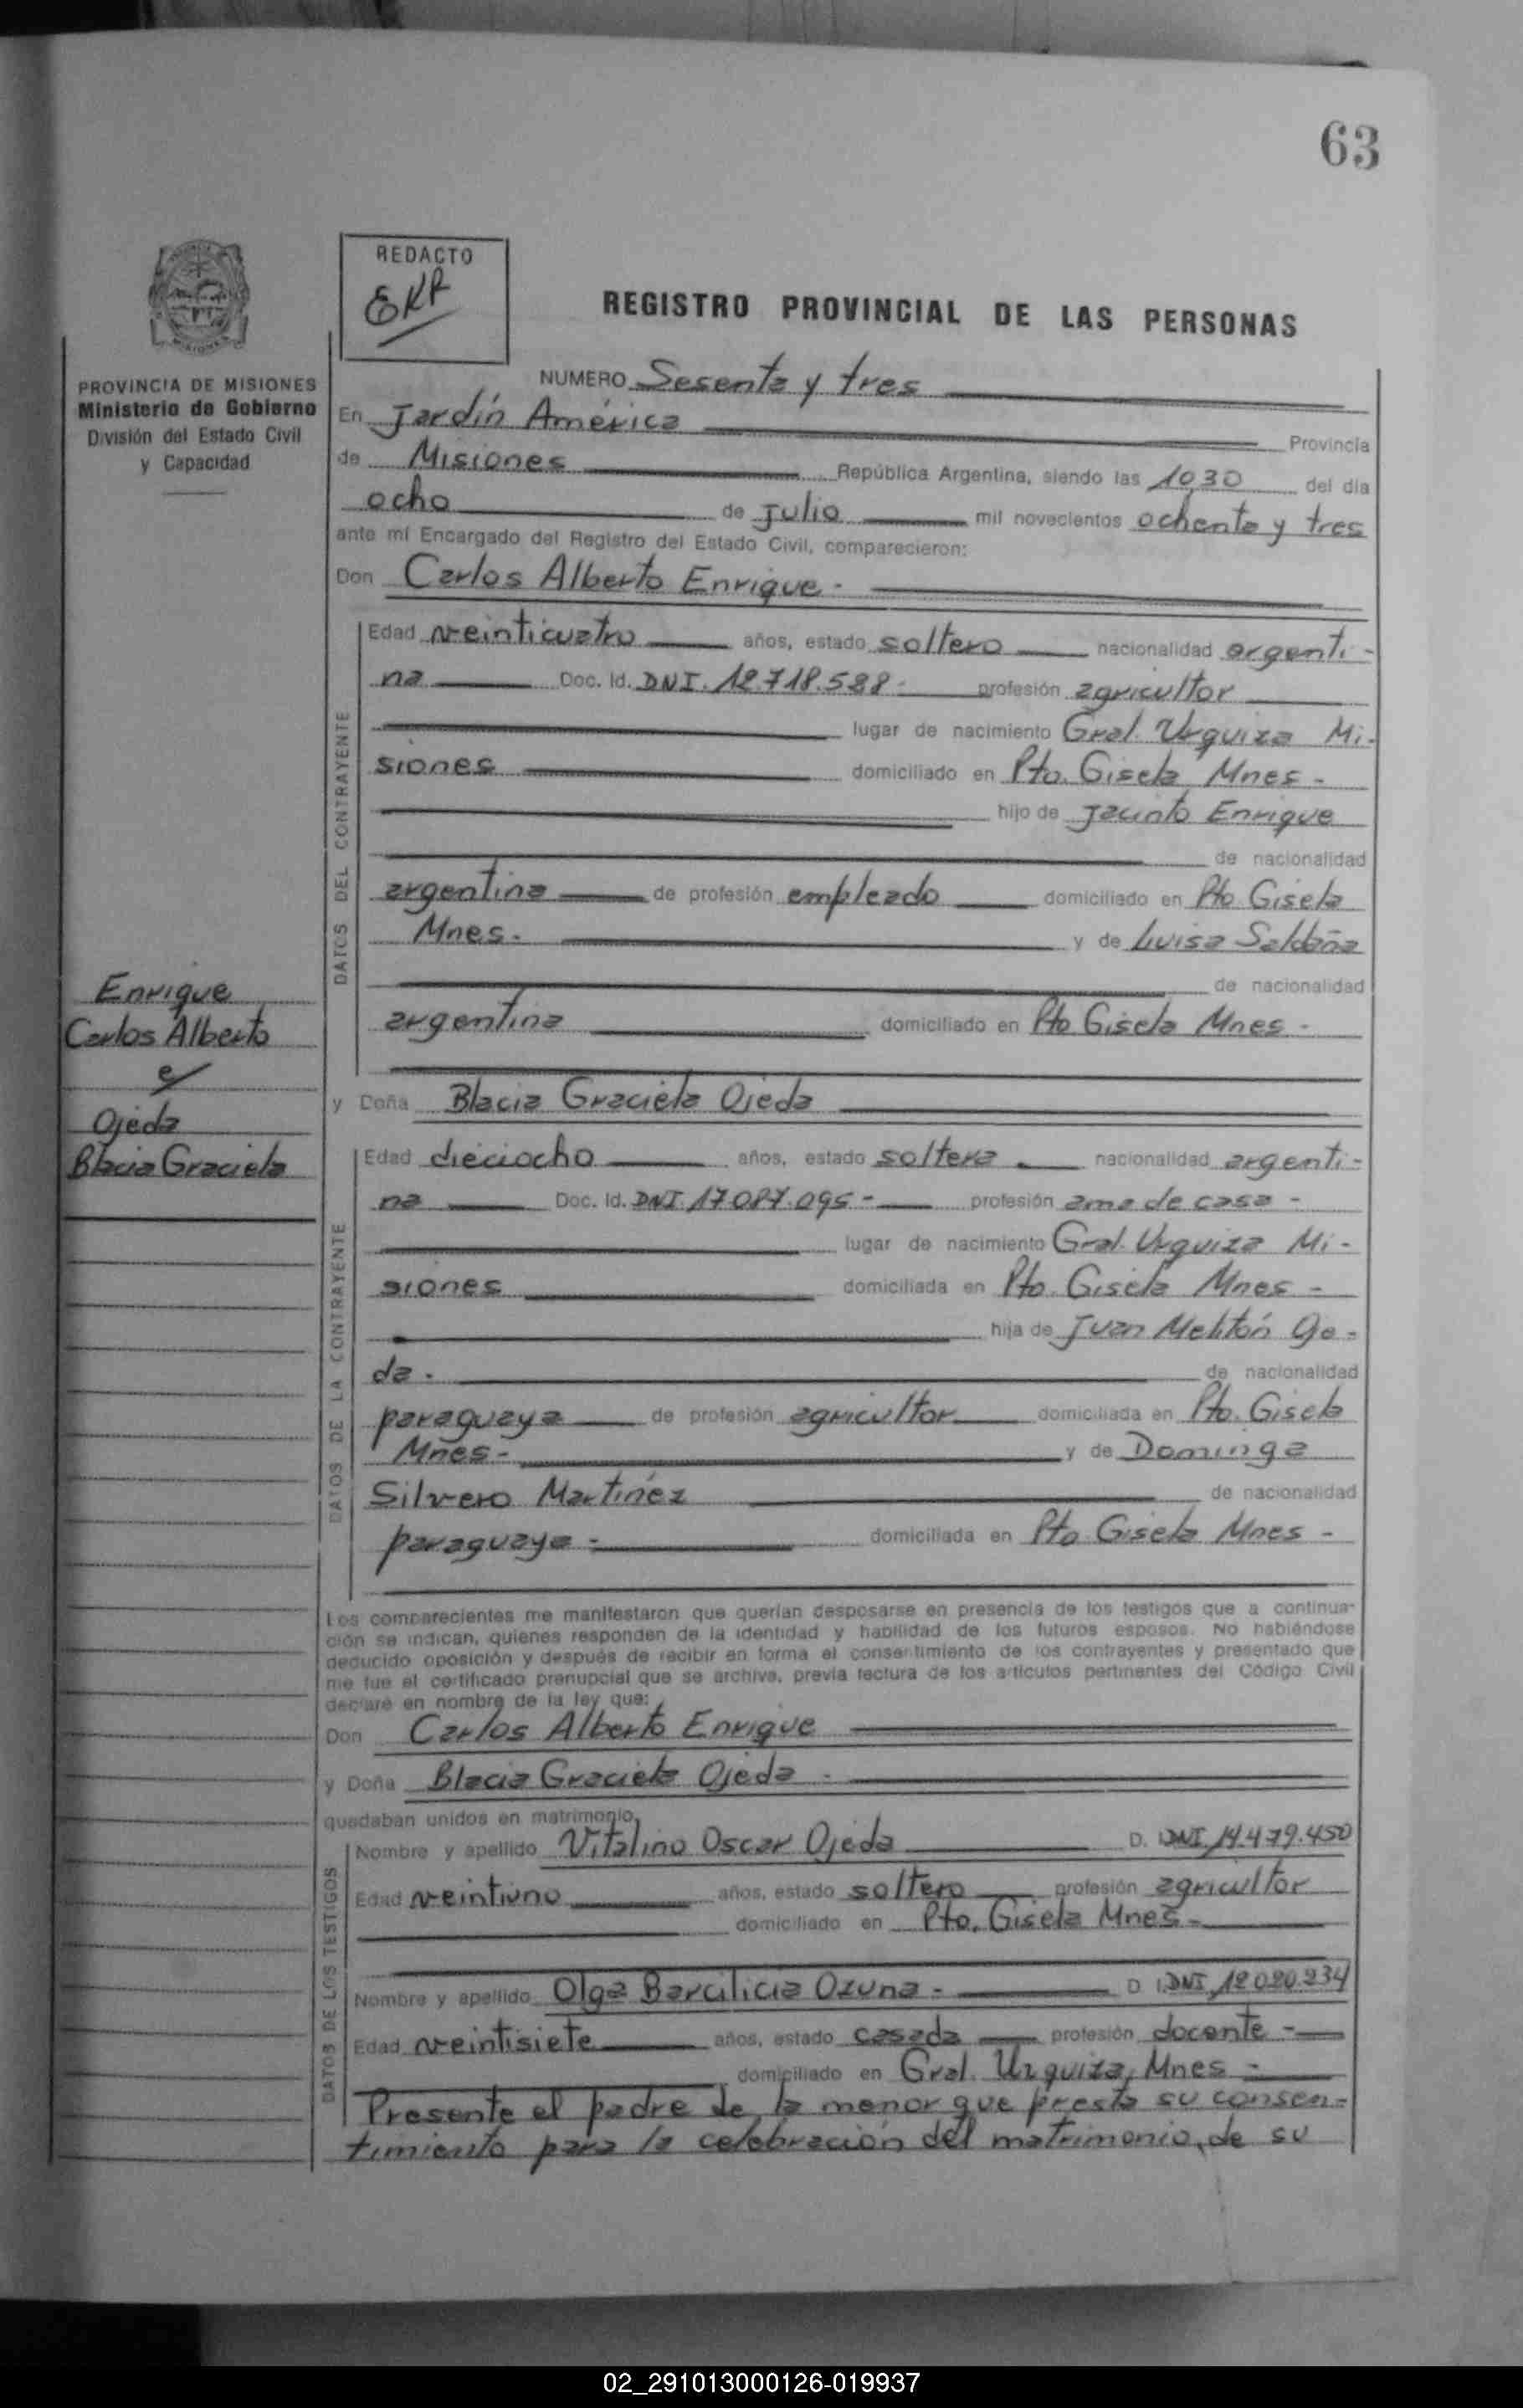 63
REDACTO
EKR
REGISTRO PROVINCIAL DE LAS PERSONAS
PROVINCIA DE MISIONES
Ministerio de Gobierno
División del Estado Civil
y Capacidad
NUMERO Sesenta y tres
En Jardín América Provincia
de Misiones República Argentina, siendo las 10,30 del día
ocho de Julio mil novecientos ochenta y tres
ante mí Encargado del Registro del Estado Civil, comparecieron:
Don Carlos Alberto Enrique.-
DATOS DEL CONTRAYENTE
Edad veinticuatro años, estado soltero nacionalidad argenti-
na Doc. Id. DNI. 12.718.588- profesión agricultor
lugar de nacimiento Gral. Urquiza Mi-
siones domiciliado en Pto. Gisela Mnes-
hijo de Jacinto Enrique
de nacionalidad
argentina de profesión empleado domiciliado en Pto Gisela
Mnes. y de Luisa Saldaña
de nacionalidad
argentina domiciliado en Pto Gisela Mnes-
Enrique
Carlos Alberto
e
Ojeda
Blacia Graciela
y Doña Blacia Graciela Ojeda
DATOS DE LA CONTRAYENTE
Edad dieciocho años, estado soltera nacionalidad argenti-
na Doc. Id. DNI. 17.087.095- profesión ama de casa-
lugar de nacimiento Gral. Urquiza Mi-
siones domiciliada en Pto. Gisela Mnes-
hija de Juan Melitón Oje-
da. de nacionalidad
paraguaya de profesión agricultor domiciliada en Pto. Gisela
Mnes- y de Dominga
Silvero Martínez de nacionalidad
paraguaya- domiciliada en Pto Gisela Mnes-
Los comparecientes me manifestaron que querían desposarse en presencia de los testigos que a continua-
ción se indican, quienes responden de la identidad y habilidad de los futuros esposos. No habiéndose
deducido oposición y después de recibir en forma el consentimiento de los contrayentes y presentado que
me fue el certificado prenupcial que se archiva, previa lectura de los artículos pertinentes del Código Civil
declaré en nombre de la ley que:
Don Carlos Alberto Enrique
y Doña Blacia Graciela Ojeda-
quedaban unidos en matrimonio.
DATOS DE LOS TESTIGOS
Nombre y apellido Vitalino Oscar Ojeda D. I. DNI 14.479.450
Edad veintiuno años, estado soltero profesión agricultor
domiciliado en Pto. Gisela Mnes-
Nombre y apellido Olga Barcilicia Ozuna- D. I. DNI 12.020.234
Edad veintisiete años, estado casada profesión docente-
domiciliado en Gral. Urquiza, Mnes-
Presente el padre de la menor que presta su consen-
timiento para la celebración del matrimonio, de su
02_291013000126-019937